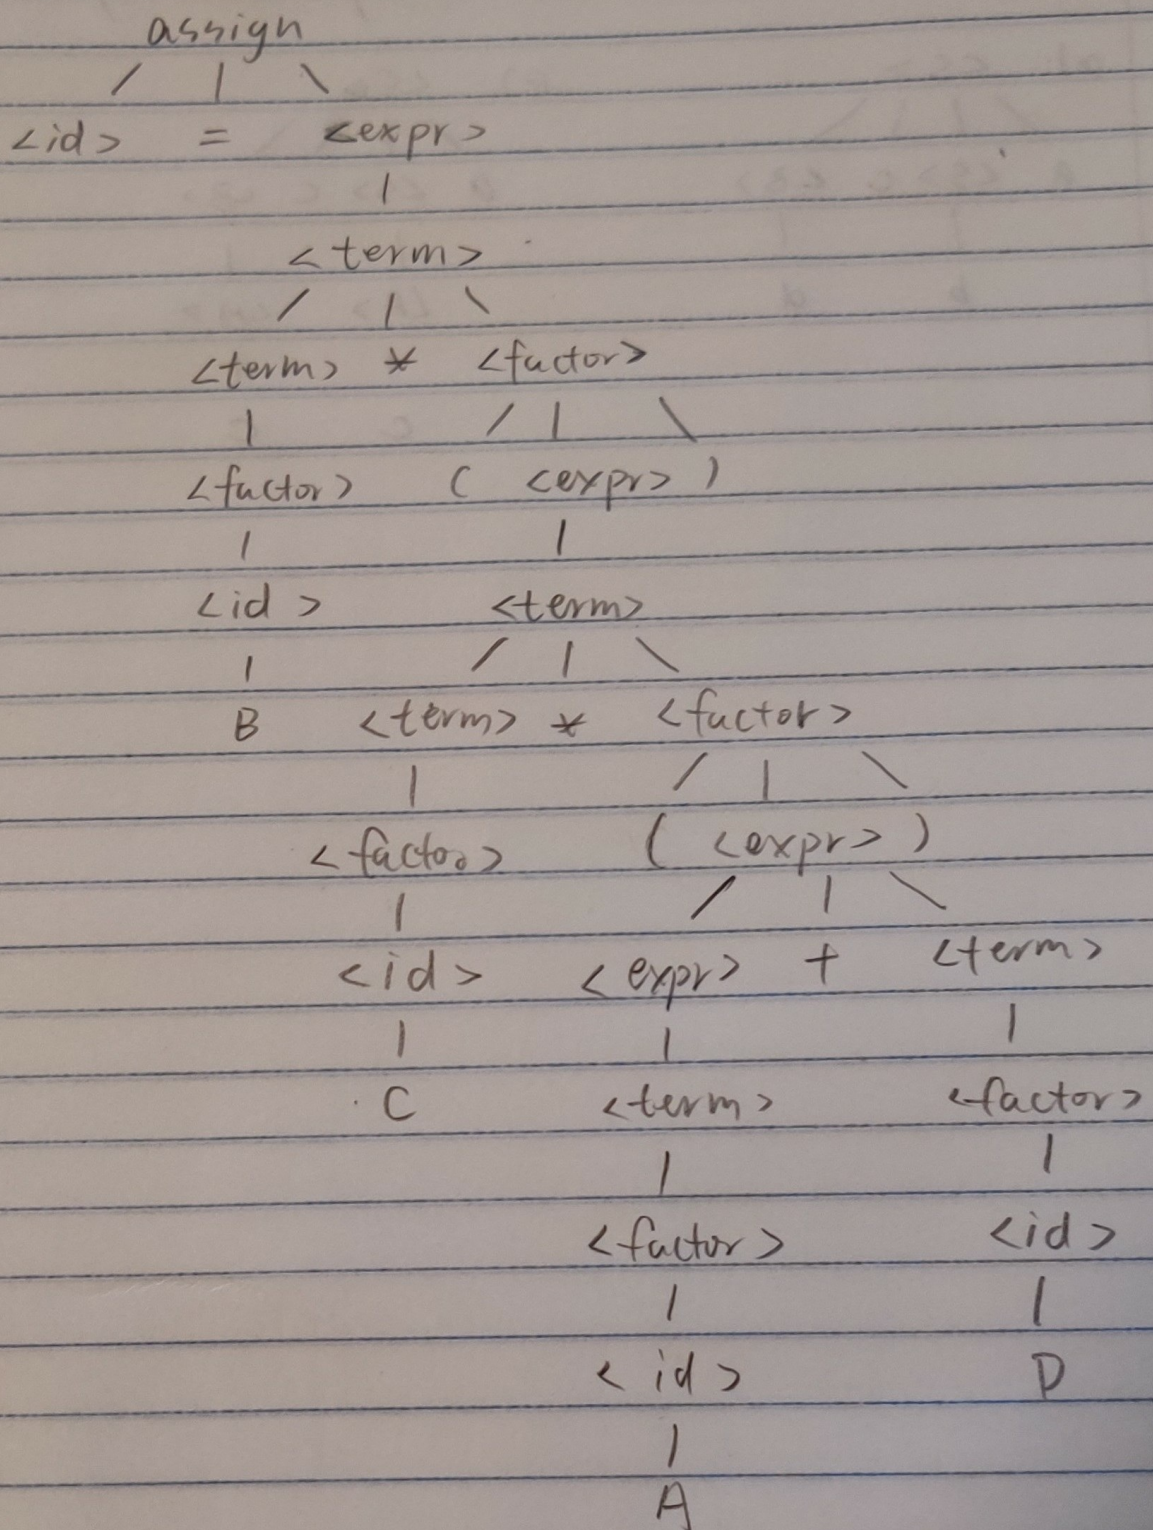 assign
<id> = <expr>
<term>
<term> * <factor>
<factor> ( <expr> )
<id> <term>
B <term> * <factor>
<factor> ( <expr> )
<id> <expr> + <term>
C <term> <factor>
<factor> <id>
<id> D
A